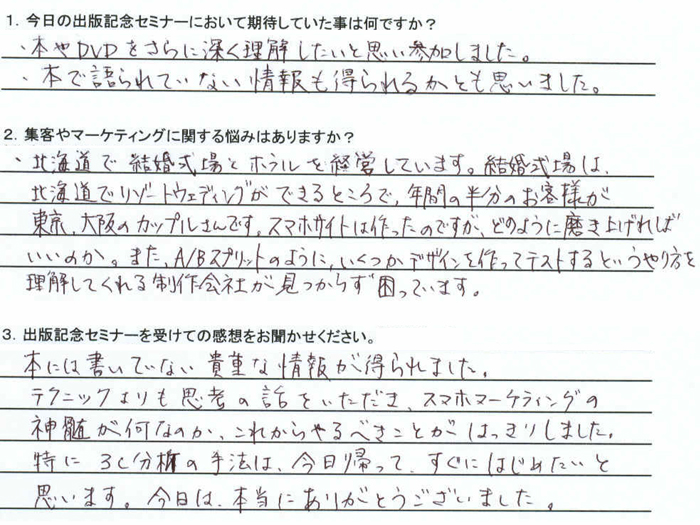 1. 今日の出版記念セミナーにおいて期待していた事は何ですか?
・本やDVDをさらに深く理解したいと思い参加しました。
・本で語られていない情報も得られるかとも思いました。
2. 集客やマーケティングに関する悩みはありますか?
・北海道で結婚式場とホテルを経営しています。結婚式場は、
北海道でリゾートウェディングができるところで、年間の半分のお客様が
東京、大阪のカップルさんです。スマホサイトは作ったのですが、どのように磨き上げれば
いいのか。また、A/Bスプリットのように、いくつかデザインを作ってテストするというやり方を
理解してくれる制作会社が見つからず困っています。
3. 出版記念セミナーを受けての感想をお聞かせください。
本には書いていない貴重な情報が得られました。
テクニックよりも思考の話をいただき、スマホマーケティングの
神髄が何なのか、これからやるべきことがはっきりしました。
特に3C分析の手法は、今日帰って、すぐにはじめたいと
思います。今日は、本当にありがとうございました。